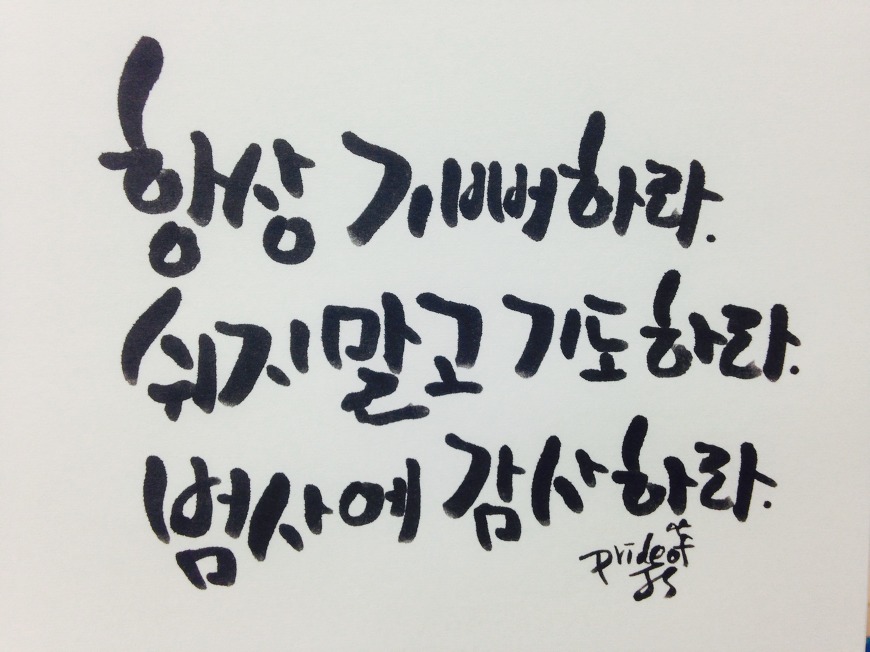 항상 기뻐하라.
쉬지말고 기도하라.
범사에 감사하라.
Prideof
JS